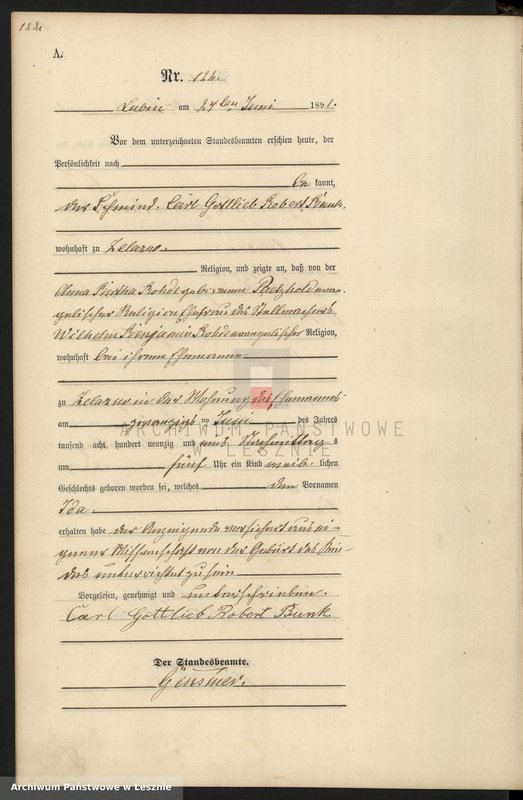 122.
A.
Nr. 122.
Lubin am 27ten Juni 1891.
Vor dem unterzeichneten Standesbeamten erschien heute, der
Persönlichkeit nach
be kannt,
der Schmied Carl Gottlieb Robert Bunk.
wohnhaft zu Zelazno.
Religion, und zeigte an, daß von der
Anna Bertha Rohde geborenen evan-
gelischer Religion Ehefrau des Stellmachers
Wilhelm Benjamin Rohde evangelischer Religion,
wohnhaft bei ihrem Ehemanne
zu Zelazno in der Wohnung des Ehemannes
am zwanzigsten Juni des Jahres
tausend acht hundert neunzig und eins Nachmittag s
um fünf Uhr ein Kind weib lichen
Geschlechts geboren worden sei, welches den Vornamen
Ida.
erhalten habe der Anzeigende versichert aus ei-
gener Wissenschaft von der Geburt des Kin-
des unterrichtet zu sein
Vorgelesen, genehmigt und unterschrieben.
Carl Gottlieb Robert Bunk.
Der Standesbeamte.
ARCHIWUM PAŃSTWOWE
W LESZNIE
Archiwum Państwowe w Lesznie